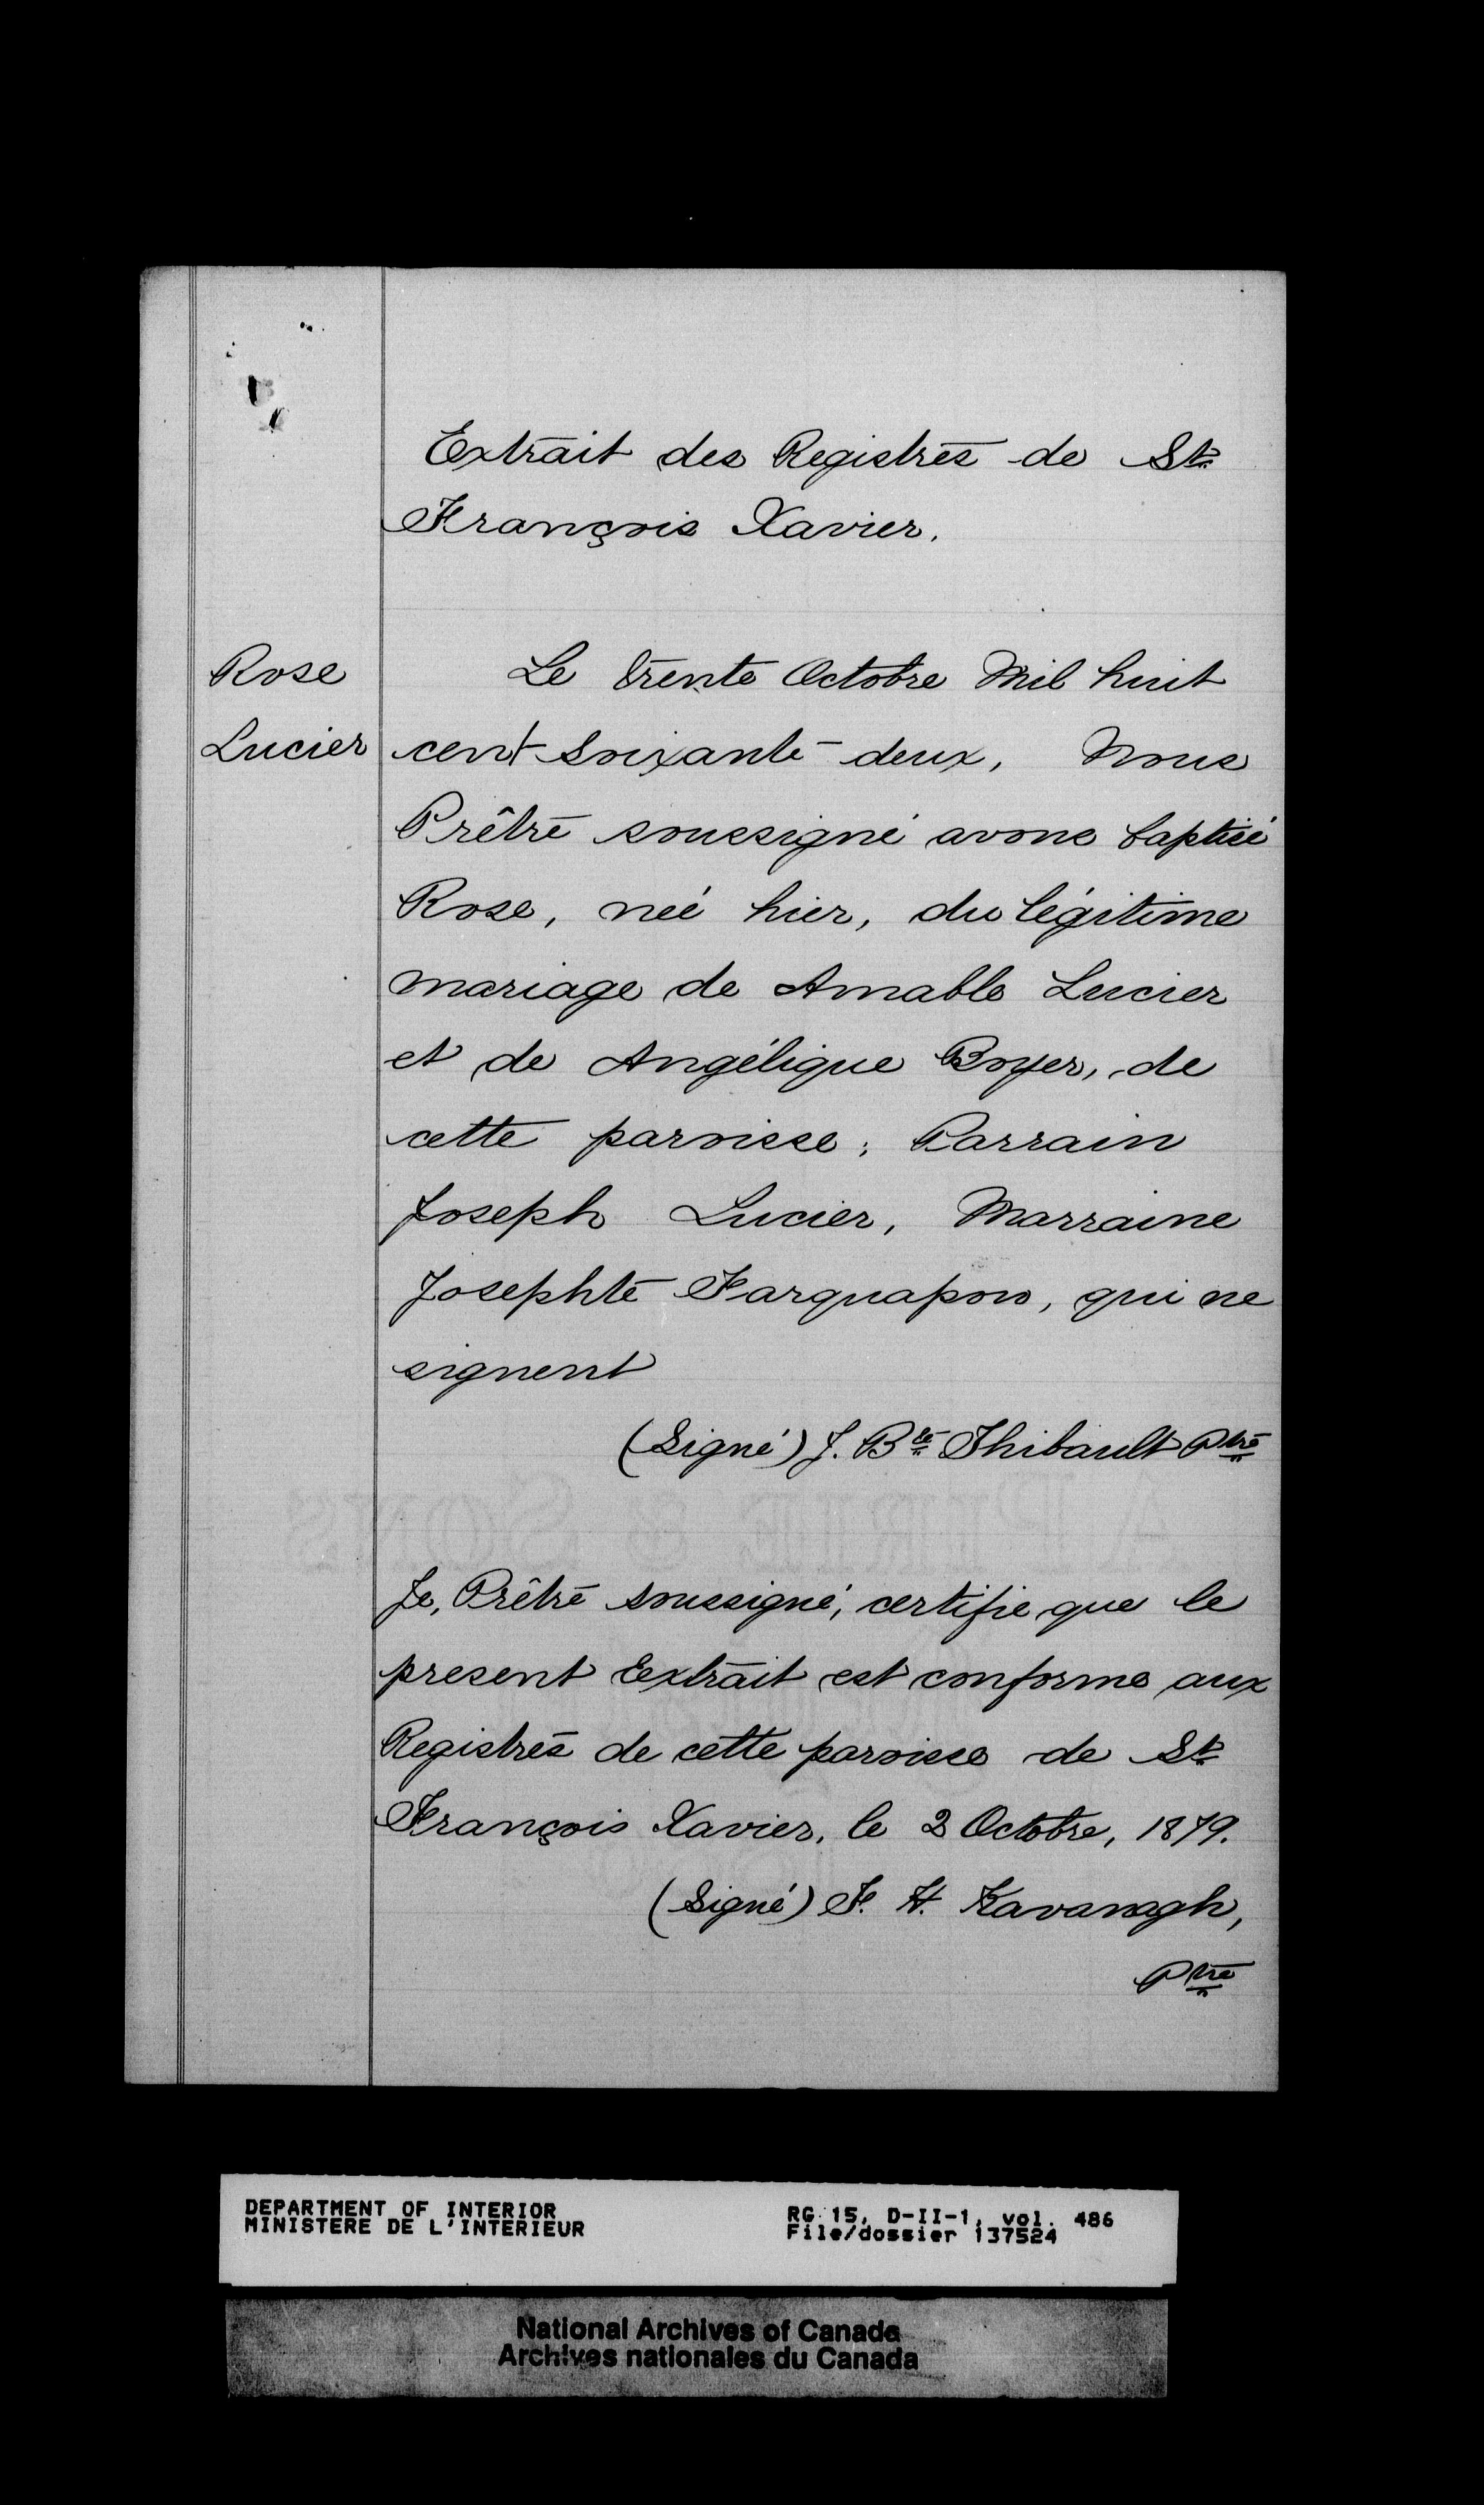 Extrait des Registres de St.
François Xavier.
Rose
Lucier
Le trente Octobre Mil huit
cent soixante-deux, Nous
Prêtre soussigné avons baptisé
Rose, neé hier, du légitime
mariage de Amable Lucier
et de Angélique Boyer, de
cette paroisse; Parrain
Joseph Lucier, Marraine
Josephte Farquapon, qui ne
signent
(Signé) J. Bte Thibault Ptre
Je, Prêtre soussigné, certifie que le
present Extrait est conforme aux
Registres de cette paroisse de St.
François Xavier, le 2 Octobre, 1879.
(Signé) F. H. Kavanagh,
Ptre
DEPARTMENT OF INTERIOR
MINISTERE DE L'INTERIEUR
RG 15, D-II-1, vol. 486
File/dossier 137524
National Archives of Canada
Archives nationales du Canada